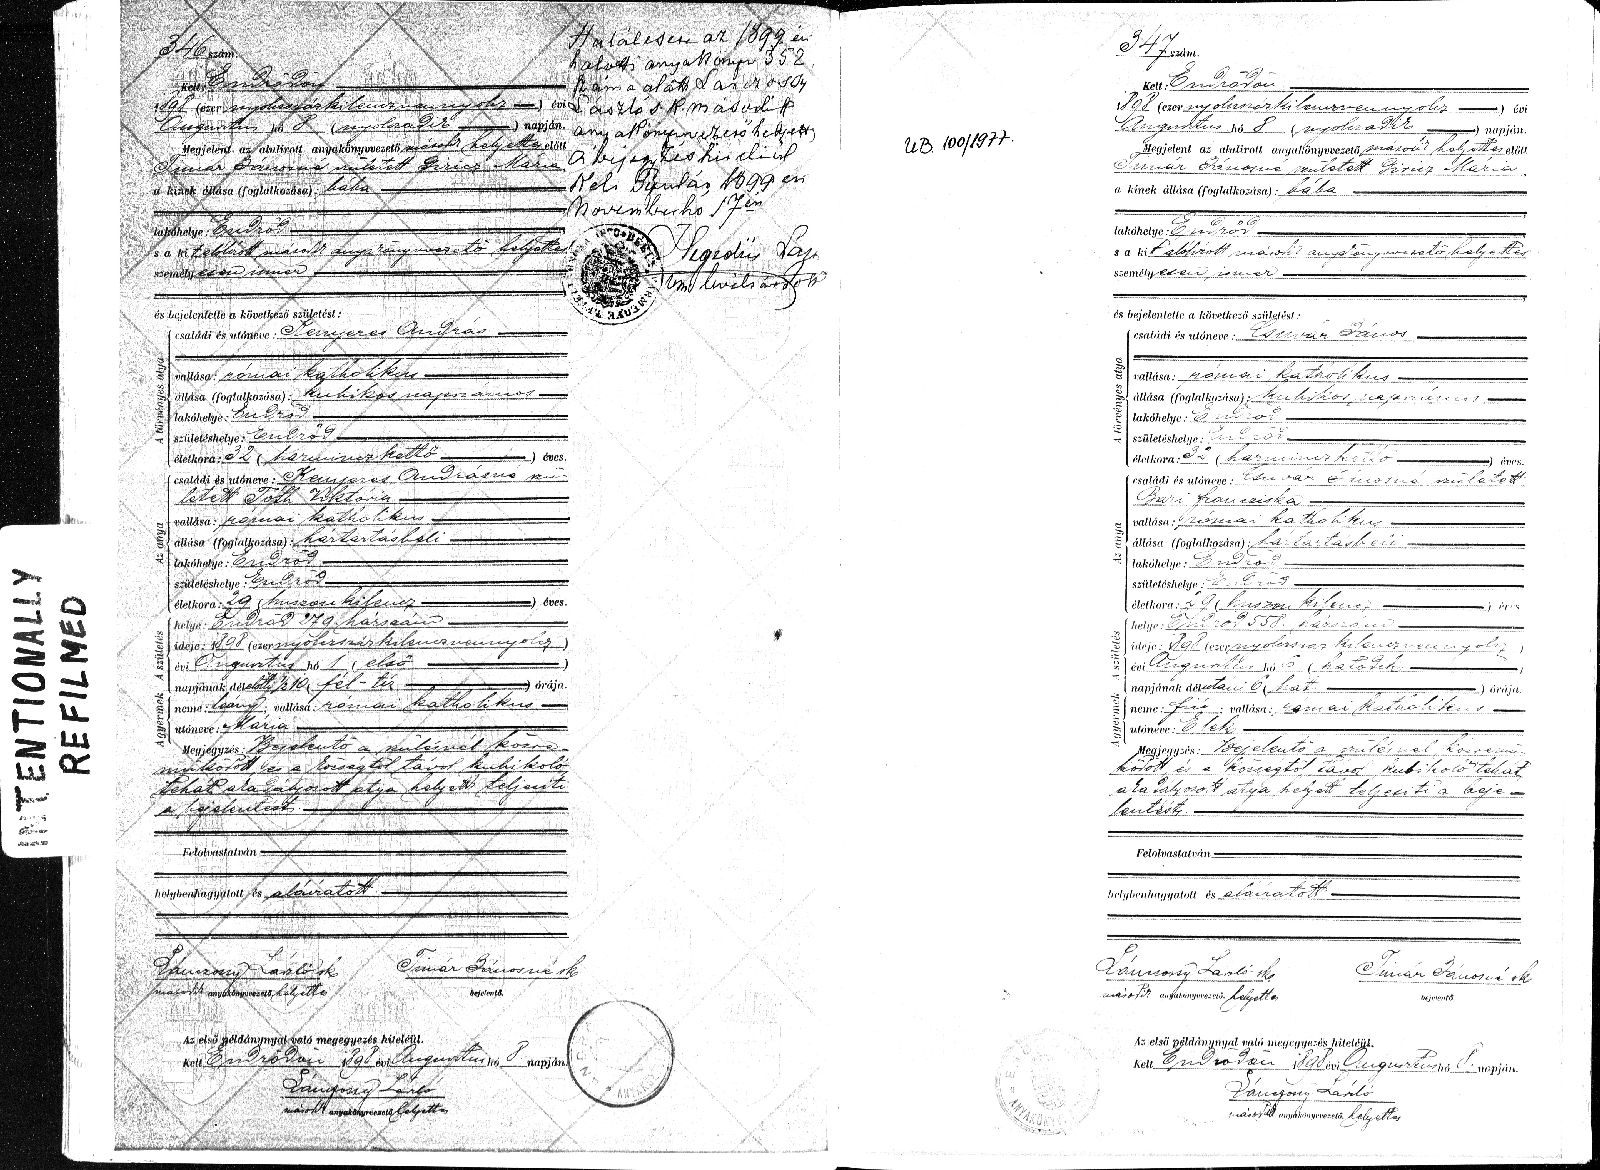 INTENTIONALLY
REFILMED
346 szám.
Kelt Endrődön
1898 (ezer nyolczszázkilenczvennyolcz) évi
Augusztus hó 8 (nyolczadik) napján.
Megjelent az alulirott anyakönyvvezető másod helyettes előtt
Timár Jánosné született Mária
a kinek állása (foglalkozása): bába
lakóhelye: Endrőd
s a kit alólirott másod anyakönyvvezető helyettes
személyesen ismer
és bejelentette a következő születést:
A törvényes atya
családi és utóneve: Kenyeres András
vallása: római katholikus
állása (foglalkozása): kubikos napszámos
lakóhelye: Endrőd
születéshelye: Endrőd
életkora: 32 (harminczkettő) éves.
Az anya
családi és utóneve: Kenyeres Andrásné szü-
letett Tóth Viktória
vallása: római katholikus
állása (foglalkozása): háztartásbeli
lakóhelye: Endrőd
születéshelye: Endrőd
életkora: 29 (huszonkilencz) éves.
A születés
helye: Endrőd 279 házszám
ideje: 1898 (ezer nyolczszázkilenczvennyolcz)
évi Augusztus hó 1 (első)
napjának délelőtti 1/2 10 (fél-tíz) órája.
A gyermek
neme: leány; vallása: római katholikus
utóneve: Mária
Megjegyzés: Bejelentő a szülésnél közre-
működött és a községtől távol kubikoló
tehát akadályozott atya helyett teljesíti
a bejelentést.
Felolvastatván
helybenhagyatott és aláiratott
Lánczossy László sk Timár Jánosné sk
másod anyakönyvvezető, helyettes bejelentő.
Az első példánynyal való megegyezés hiteléül.
Kelt Endrődön 1898 évi Augusztus hó 8 napján.
Lánczossy László
másod anyakönyvvezető, helyettes
Halálesete az 1899 évi
halotti anyakönyv 352
száma alatt Lánczossy
László sk. másod
anyakönyvvezető helyett,
a bejegyzés hiteléül
Kelt Gyulán 1899 évi
November hó 17én
Hegedűs
347 szám.
Kelt Endrődön
1898 (ezer nyolczszázkilenczvennyolcz) évi
Augusztus hó 8 (nyolczadik) napján.
Megjelent az alulirott anyakönyvvezető másod helyettes előtt
Timár Jánosné született Mária
a kinek állása (foglalkozása): bába
lakóhelye: Endrőd
s a kit alólirott másod anyakönyvvezető helyettes
személyesen ismer
és bejelentette a következő születést:
A törvényes atya
családi és utóneve: János
vallása: római katholikus
állása (foglalkozása): kubikos napszámos
lakóhelye: Endrőd
születéshelye: Endrőd
életkora: 32 (harminczkettő) éves.
Az anya
családi és utóneve: Jánosné született
Franciska
vallása: római katholikus
állása (foglalkozása): háztartásbeli
lakóhelye: Endrőd
születéshelye: Endrőd
életkora: 29 (huszonkilencz) éves
A születés
helye: Endrőd 558 házszám
ideje: 1898 (ezer nyolczszázkilenczvennyolcz)
évi Augusztus hó 6 (hatodik)
napjának délutáni 6 (hat) órája.
A gyermek
neme: fiú; vallása: római katholikus
utóneve: Elek
Megjegyzés: Bejelentő a szülésnél közremű-
ködött és a községtől távol kubikoló tehát
akadályozott atya helyett teljesíti a beje-
lentést.
Felolvastatván
helybenhagyatott és aláiratott
Lánczossy László sk Timár Jánosné sk
másod anyakönyvvezető, helyettes bejelentő
Az első példánynyal való megegyezés hiteléül.
Kelt Endrődön 1898 évi Augusztus hó 8. napján.
Lánczossy László
másod anyakönyvvezető, helyettes
UB. 100/1977.